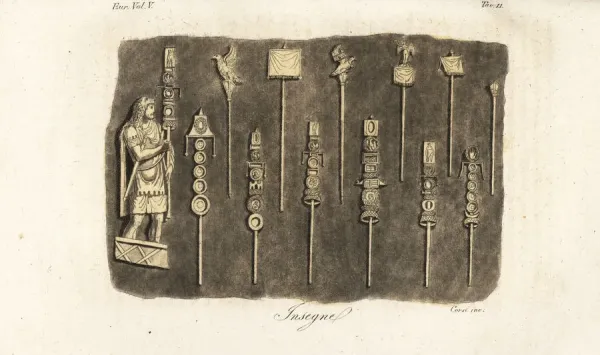 Eur. Vol. V.
Tav. 11
Insegne
Corsi inc.